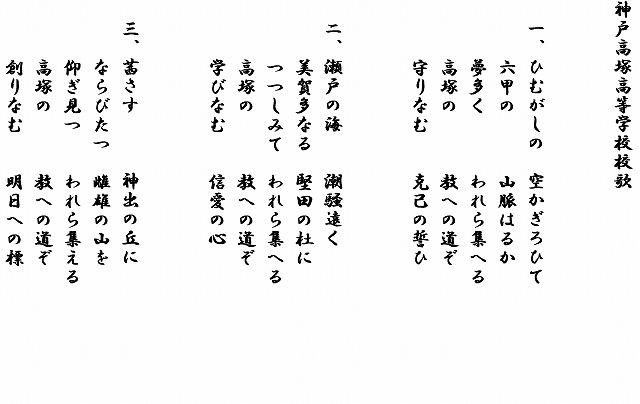 神戸高塚高等学校校歌
一、ひむがしの　空かぎろひて
六甲の　山脈はるか
夢多く　われら集へる
高塚の　教への道ぞ
守りなむ　克己の誓ひ
二、瀬戸の海　潮騒遠く
美賀多なる　堅田の杜に
つつしみて　われら集へる
高塚の　教への道ぞ
学びなむ　信愛の心
三、茜さす　神出の丘に
ならびたつ　雌雄の山を
仰ぎ見つ　われら集える
高塚の　教への道ぞ
創りなむ　明日への標